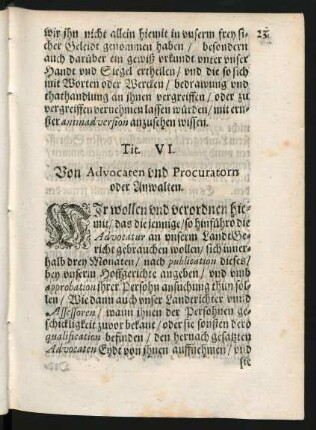 23
wir ihn nicht allein hiemit in vnserm frey si-
cher Geleidt genommen haben / besondern
auch darüber ein gewiß vrkundt vnter vnser
Handt vnd Siegel ertheilen / vnd die so sich
mit Worten oder Wercken / bedrawung vnd
thathandlung an ihnen vergreiffen / oder zu
vergreiffen vernehmen lassen würden / mit ern-
ster animadversion anzusehen wissen.
Tit. VI.
Von Advocaten vnd Procuratorn
oder Anwalten.
WIr wollen vnd verordnen hie-
mit / das die jennige / so hinführo die
Advocatur an vnserm LandtGe-
richt gebrauchen wollen / sich inner-
halb drey Monaten / nach publication dieses /
bey vnserm Hoffgerichte angeben / vnd vmb
approbation ihrer Persohn ansuchung thun sol-
len / Wie dann auch vnser Landerichter vnnd
Assessoren / wann ihnen der Persohnen ge-
schickligkeit zuvor bekant / oder sie sonsten dero
qualification befinden / den hernach gesatzten
Advocaten Eydt von ihnen auffnehmen / vnd
sie